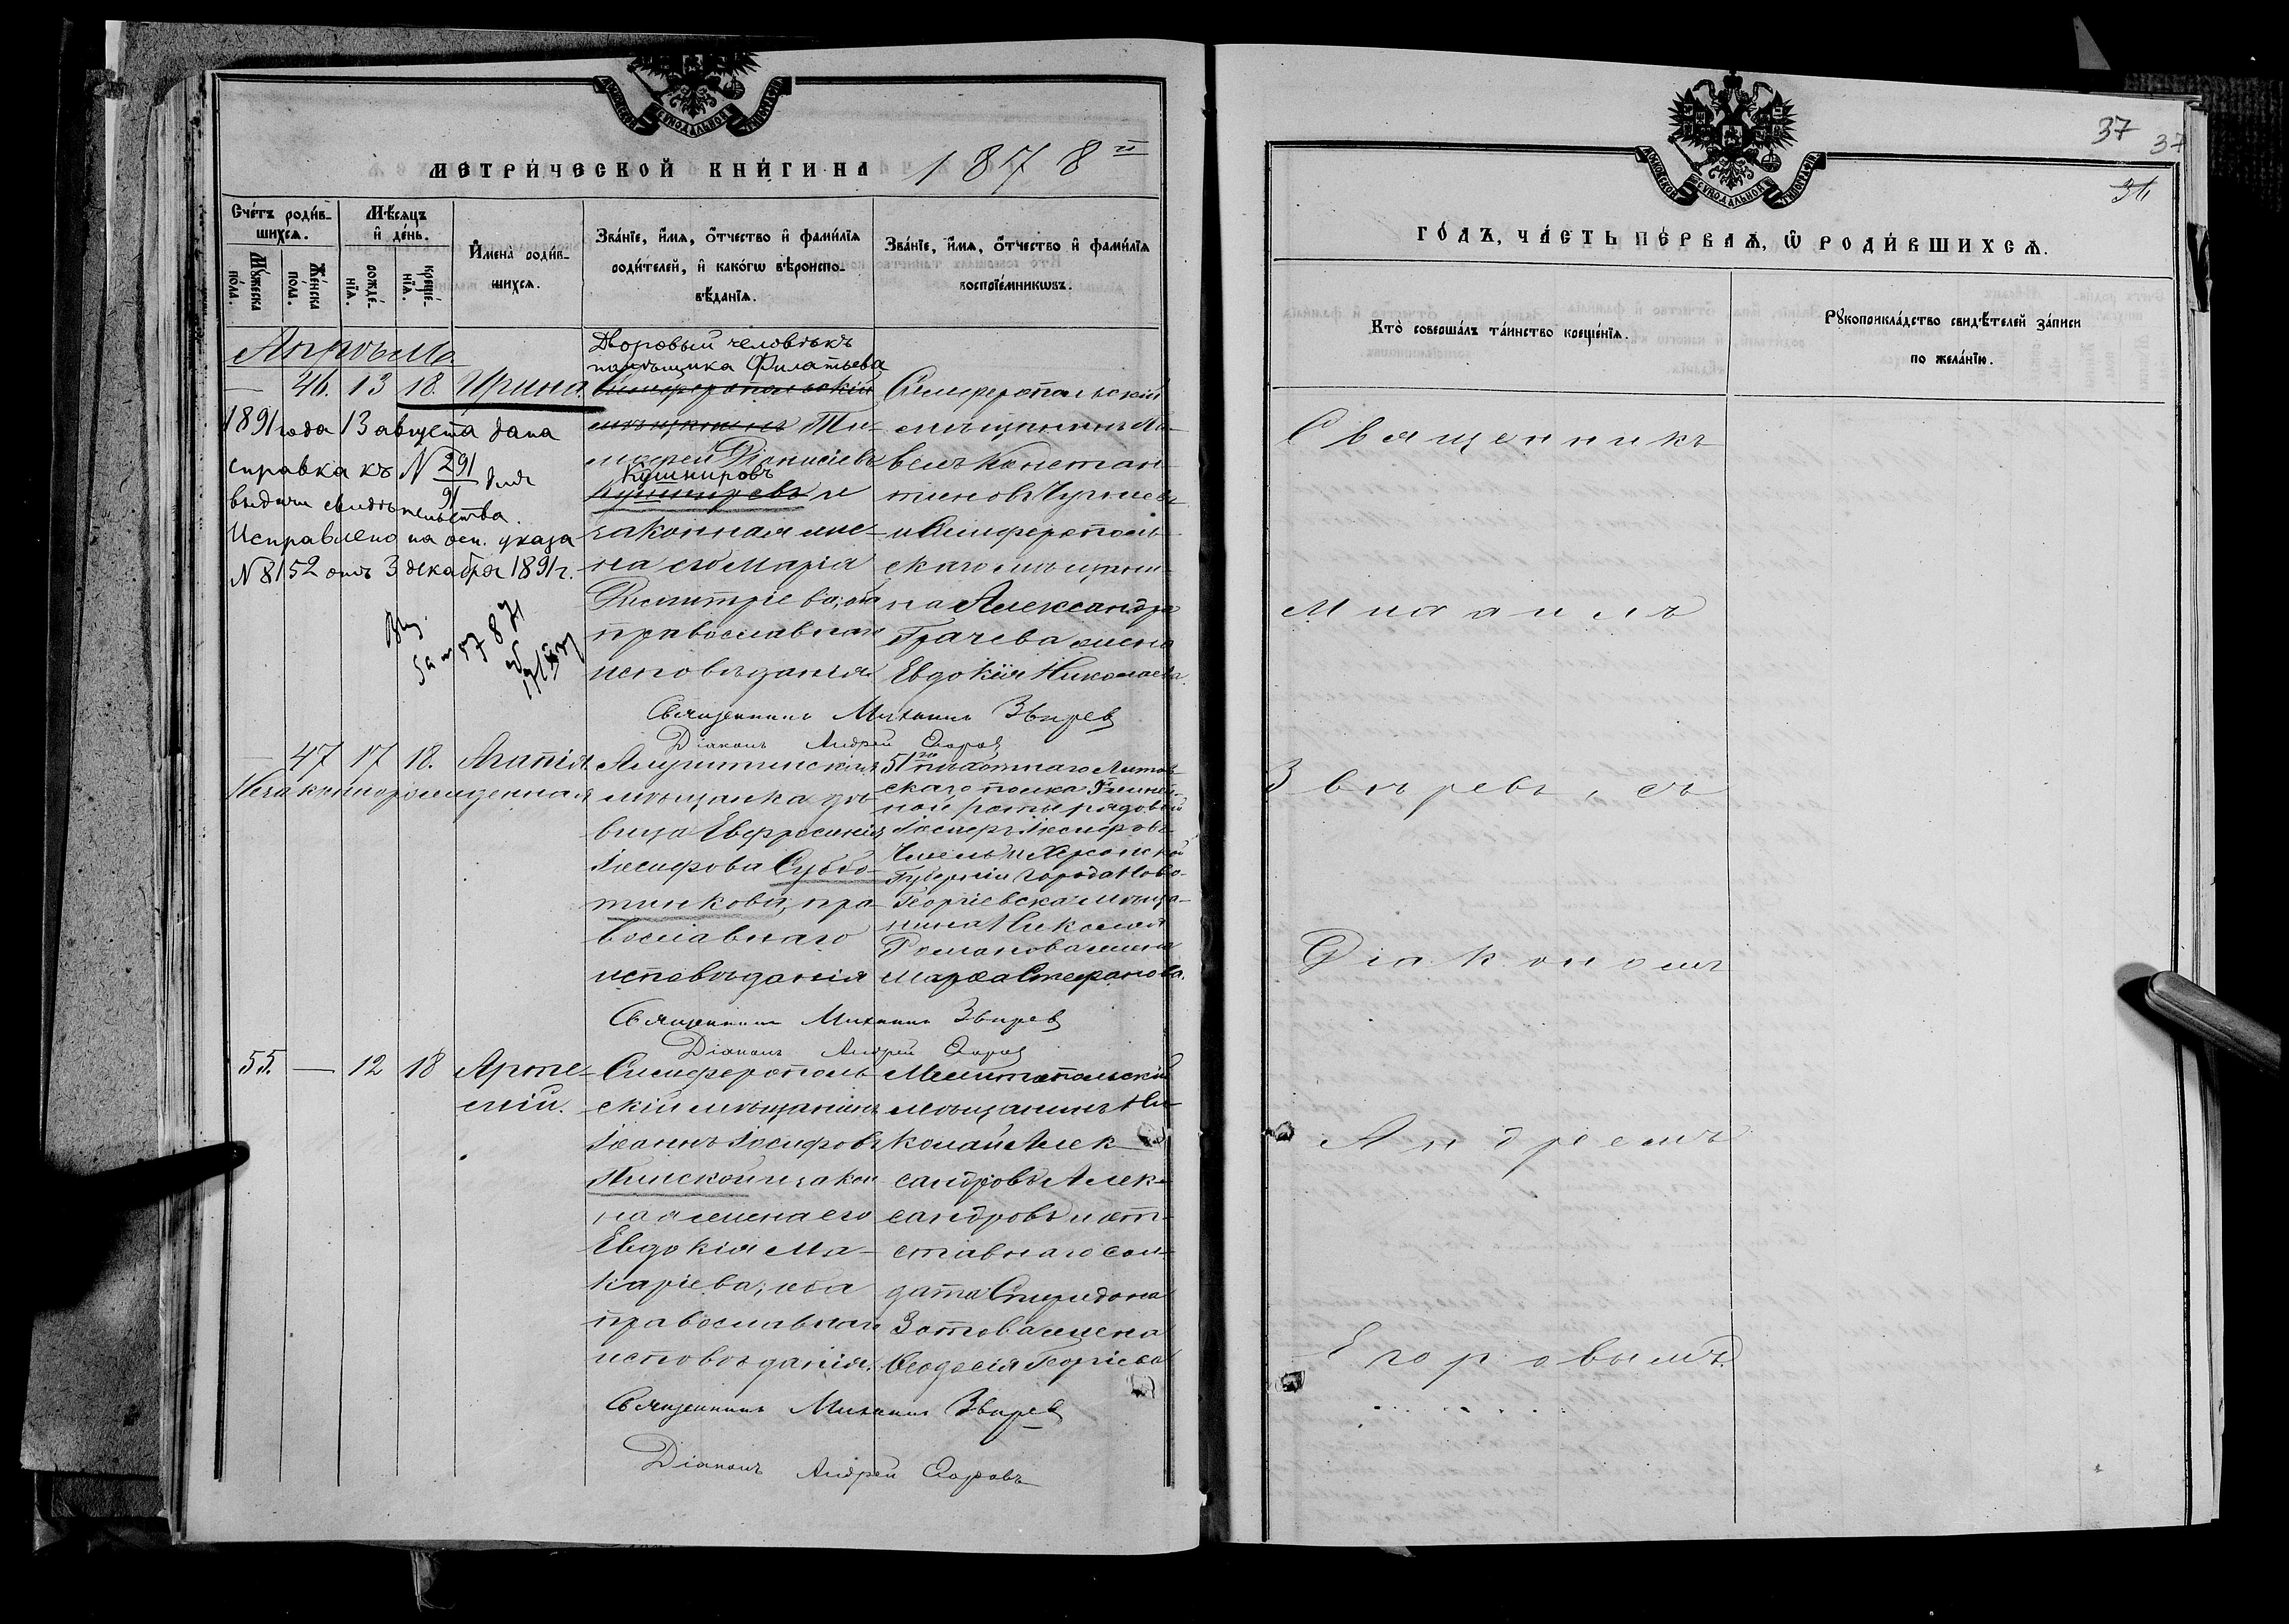 МЕТРИ́ЧЕСКОЙ КНИ́ГИ НА 1878й
Сче́тъ роди́в-
шихсѧ.
Мꙋ́жеска по́ла.
Же́нска по́ла.
Мѣ́сѧцъ
и҆ де́нь.
рожде́-
нїѧ.
креще́-
нїѧ.
И҆мена̀ роди́в-
шихсѧ.
Зва́нїе, и҆́мѧ, ѻ҆́тчество и҆ фами́лїѧ
роди́телей, и҆ како́гѡ вѣроиспо-
вѣ́данїѧ.
Зва́нїе, и҆́мѧ, ѻ҆́тчество и҆ фами́лїѧ
воспрїе́мникѡвъ.
Апрѣль
Дворовый человѣкъ
помѣщика Филатьева
— 46. 13 18. Ирина.
Симферопольскій
мѣщанинъ Ти-
мофей Діонисіевъ
Кушнировъ
и
законная же-
на его Марія
Димитріева, оба
православнаго
исповѣданія
Симферопольскій
мѣщанинъ Па-
велъ Констан-
тиновъ
и Симферополь-
скаго мѣщани-
на Александра
Грачева жена
Евдокія Николаева.
1891 года 13 августа дана
справка къ N 291/91 для
выдачи свидѣтельства.
Исправлено на осн. указа
N 8152 отъ 3 декабря 1891 г.
Священникъ Михаилъ Звѣрев
Діаконъ Андрей Егоров
— 47 17 18. Агапія.
Незаконнорожденная
мѣщанка дѣ-
вица Евфросинія
Іосифова Суббо-
тинкова, пра-
вославнаго
исповѣданія
51го пѣхотнаго Литов-
скаго полка
ной роты рядовой
Іосифъ Іосифовъ
и Херсонской
Губерніи города Ново-
Георгіевска мѣща-
нина Николая
Романова жена
Марѳа Стефанова.
Священникъ Михаилъ Звѣрев
Діаконъ Андрей Егоров
55. — 12 18 Арте-
мій.
Симферополь-
скій мѣщанинъ
Іоаннъ Іосифовъ
и закон-
ная жена его
Евдокія Ма-
каріева, оба
православнаго
исповѣданія.
Мелитопольскій
мѣщанинъ Ни-
колай Алек-
сандровъ Алек-
сандровъ и от-
ставнаго сол-
дата Спиридона
Зотова жена
Ѳеодосія Георгіева
Священникъ Михаилъ Звѣрев
Діаконъ Андрей Егоровъ
37 37
ГО́ДЪ, ЧА́СТЬ ПЕ́РВАѦ, Ѡ҆ РОДИ́ВШИХСѦ.
Кто̀ соверша́лъ та́инство креще́нїѧ.
Рꙋкоприкла́дство свидѣ́телей за́писи
по жела́нїю.
Священникъ
Михаилъ
Звѣревъ, съ
Діакономъ
Андреемъ
Егоровымъ.